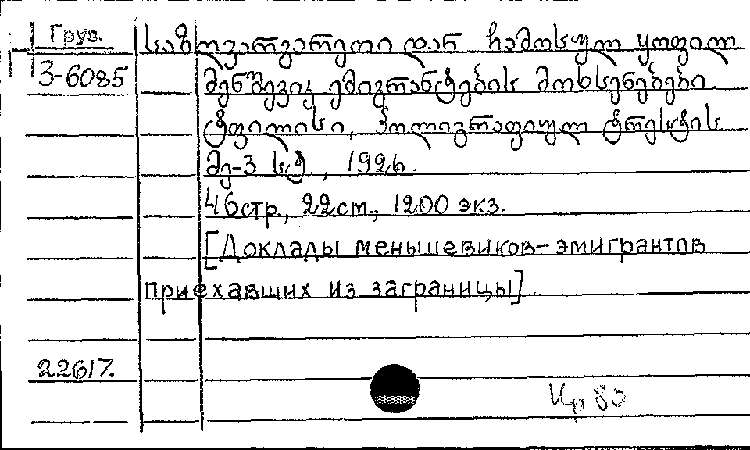 Груз.
საზღვარგარეთიდან ჩამოსულ ყოფილ
3-6085
მენშევიკ ემიგრანტების მოხსენებები.
ტფილისი, პოლიგრაფიულ ტრესტის
მე-3 სტ., 1926.
46стр., 22см., 1200 экз.
[Доклады меньшевиков-эмигрантов
приехавших из заграницы]
22617.